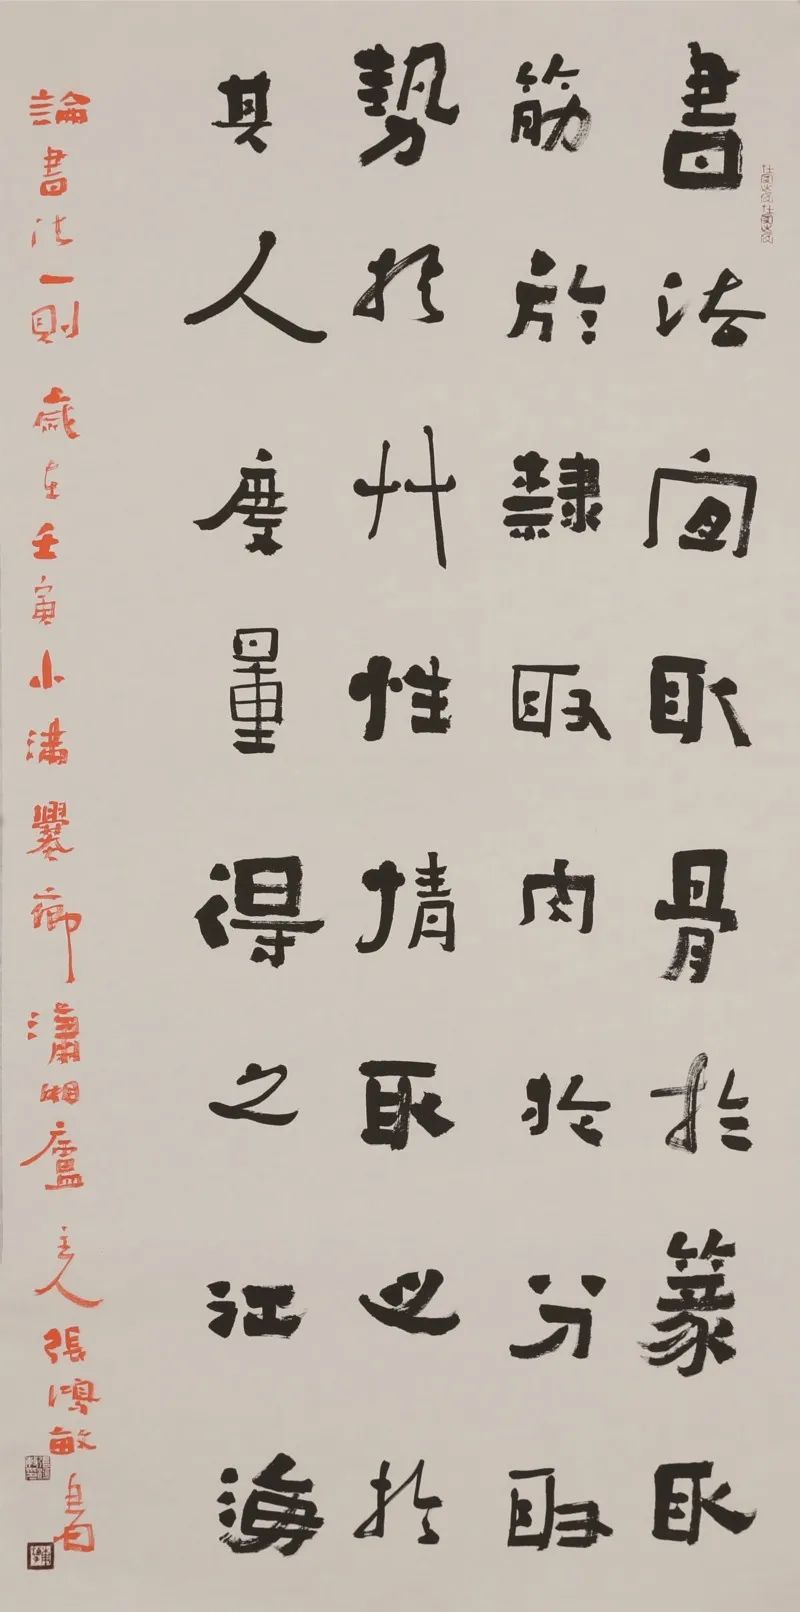 書法宜取骨於篆取
筋於隸取肉於分取
勢於艸性情取之於
其人度量得之江海
論書法一則 歲在壬寅小滿 爨鄉瀟湘廬主人張鴻敏書